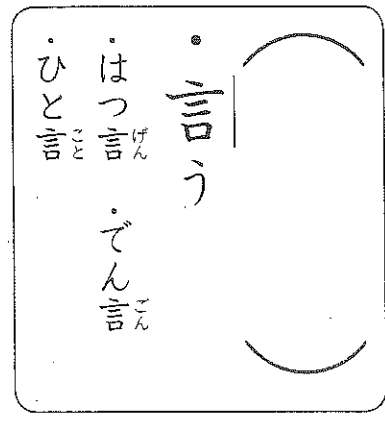 （　　　）
・言う
・はつ言 げん ・でん言 ごん
・ひと言 こと